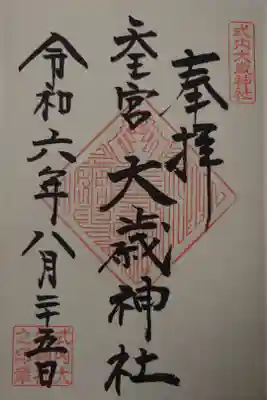 式内大歳神社
奉拝
天王宮 大歳神社
令和六年八月二十五日